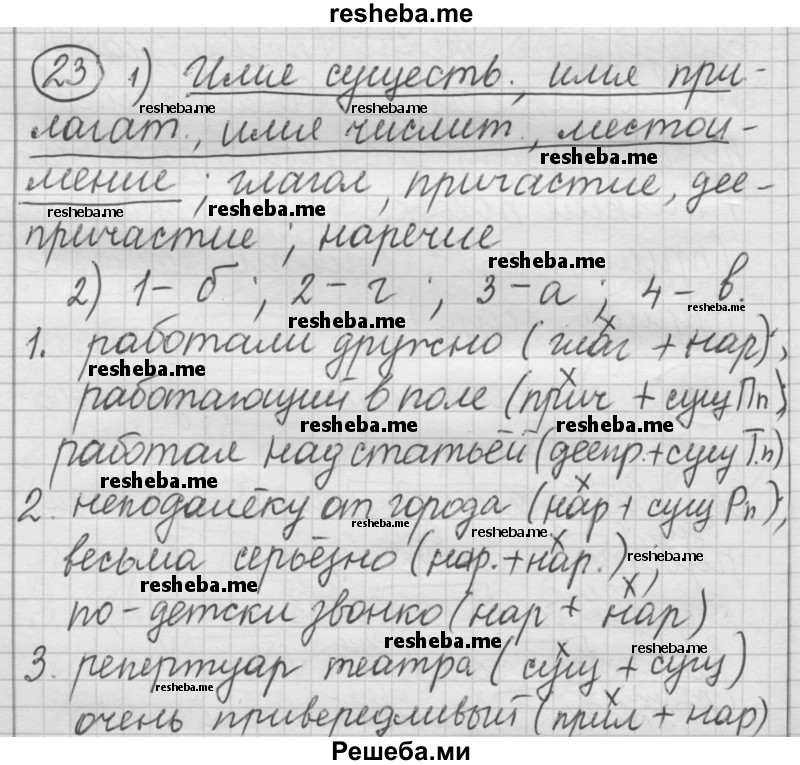 resheba.me
23 1) Имя существ., имя при-
resheba.me resheba.me
лагат., имя числит., местои-
resheba.me
мение; глагол, причастие, дее-
resheba.me resheba.me
причастие; наречие
resheba.me
2) 1-б; 2-г; 3-а; 4-в.
resheba.me resheba.me
1. работали дружно (глаг + нар),
resheba.me
работающий в поле (прич + сущ Пп)
resheba.me resheba.me
работая над статьёй (деепр.+сущ Т.п)
resheba.me
2. неподалёку от города (нар + сущ Рп),
resheba.me resheba.me
весьма серьёзно (нар.+нар.),
resheba.me resheba.me
по-детски звонко (нар + нар)
resheba.me resheba.me
3. репертуар театра (сущ + сущ)
resheba.me resheba.me
очень привередливый (прил + нар)
Решеба.ми